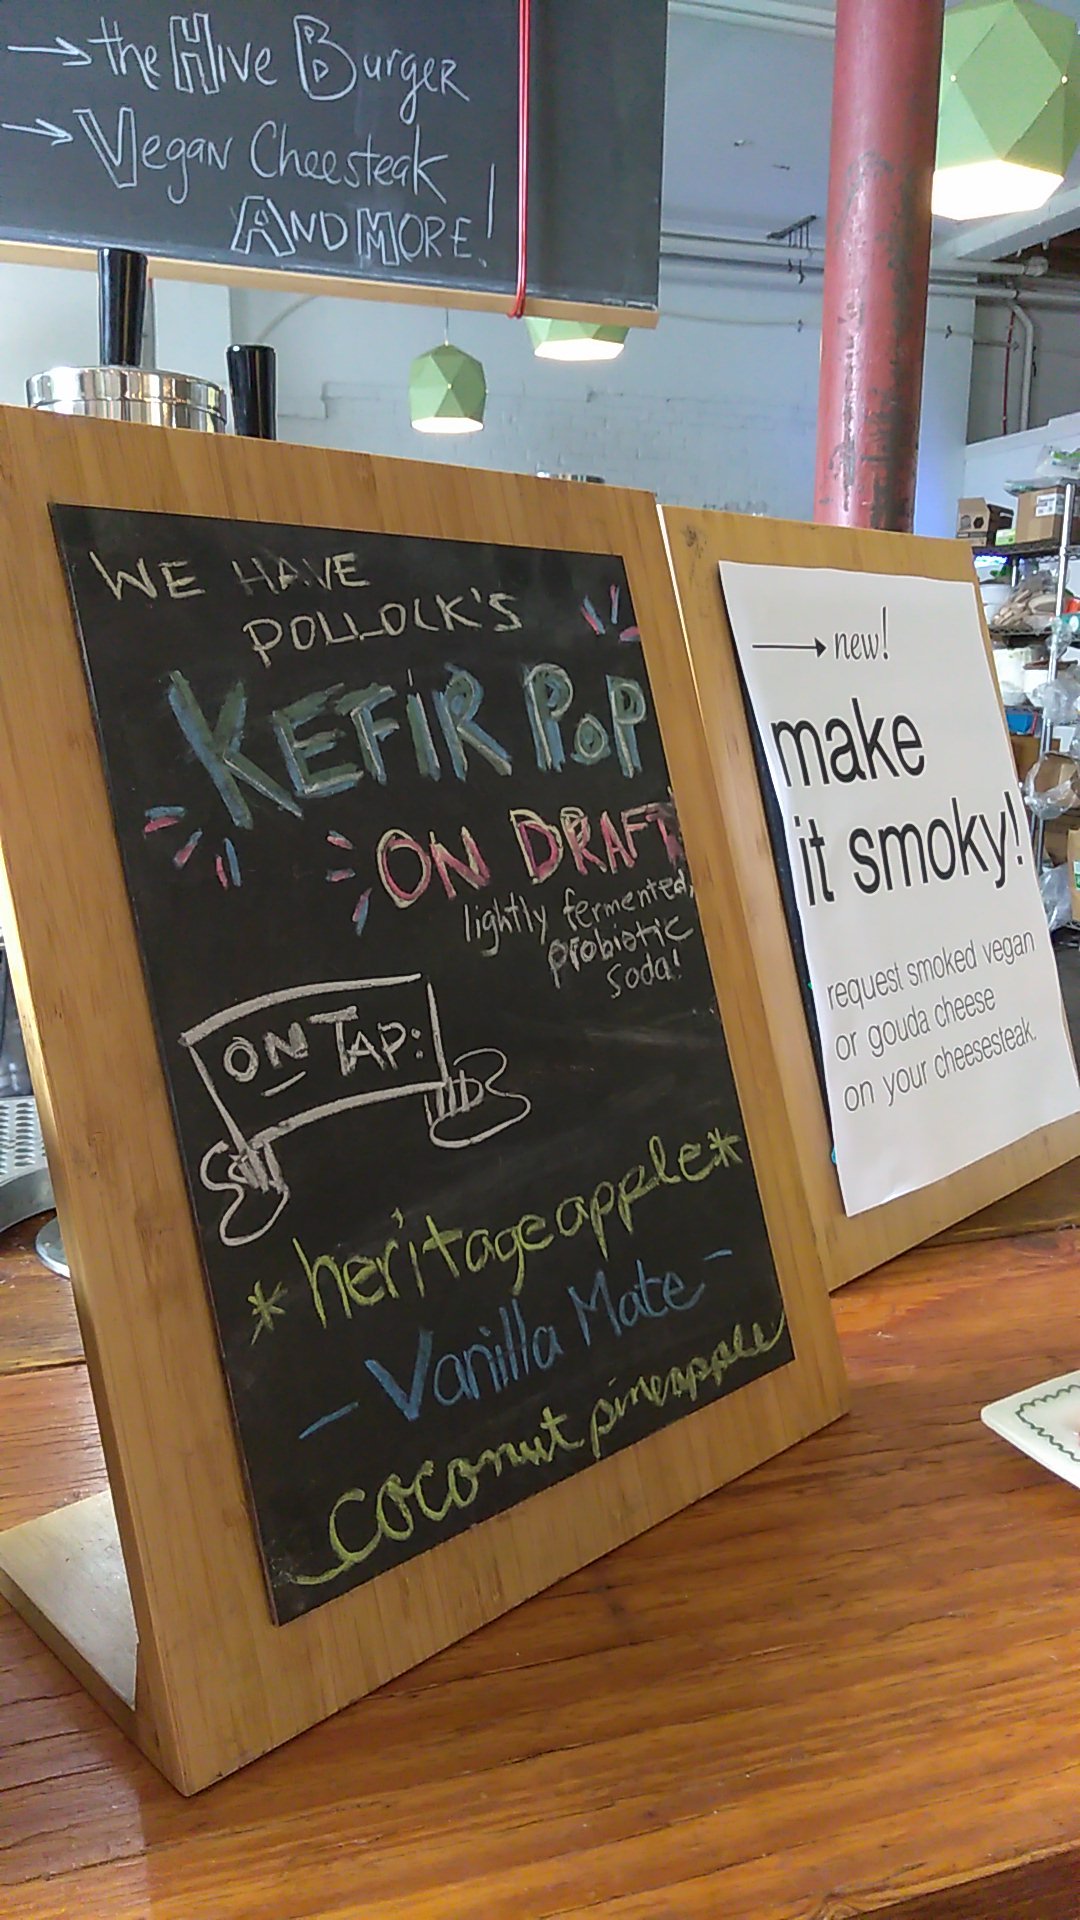 → the Hive Burger
→ Vegan Cheesteak
AND MORE!
WE HAVE
POLLOCK'S
KEFIR POP
ON DRAFT
lightly fermented,
probiotic
soda!
ON TAP:
*heritage apple*
- Vanilla Mate -
coconut pineapple
→ new!
make
it smoky!
request smoked vegan
or gouda cheese
on your cheesesteak.